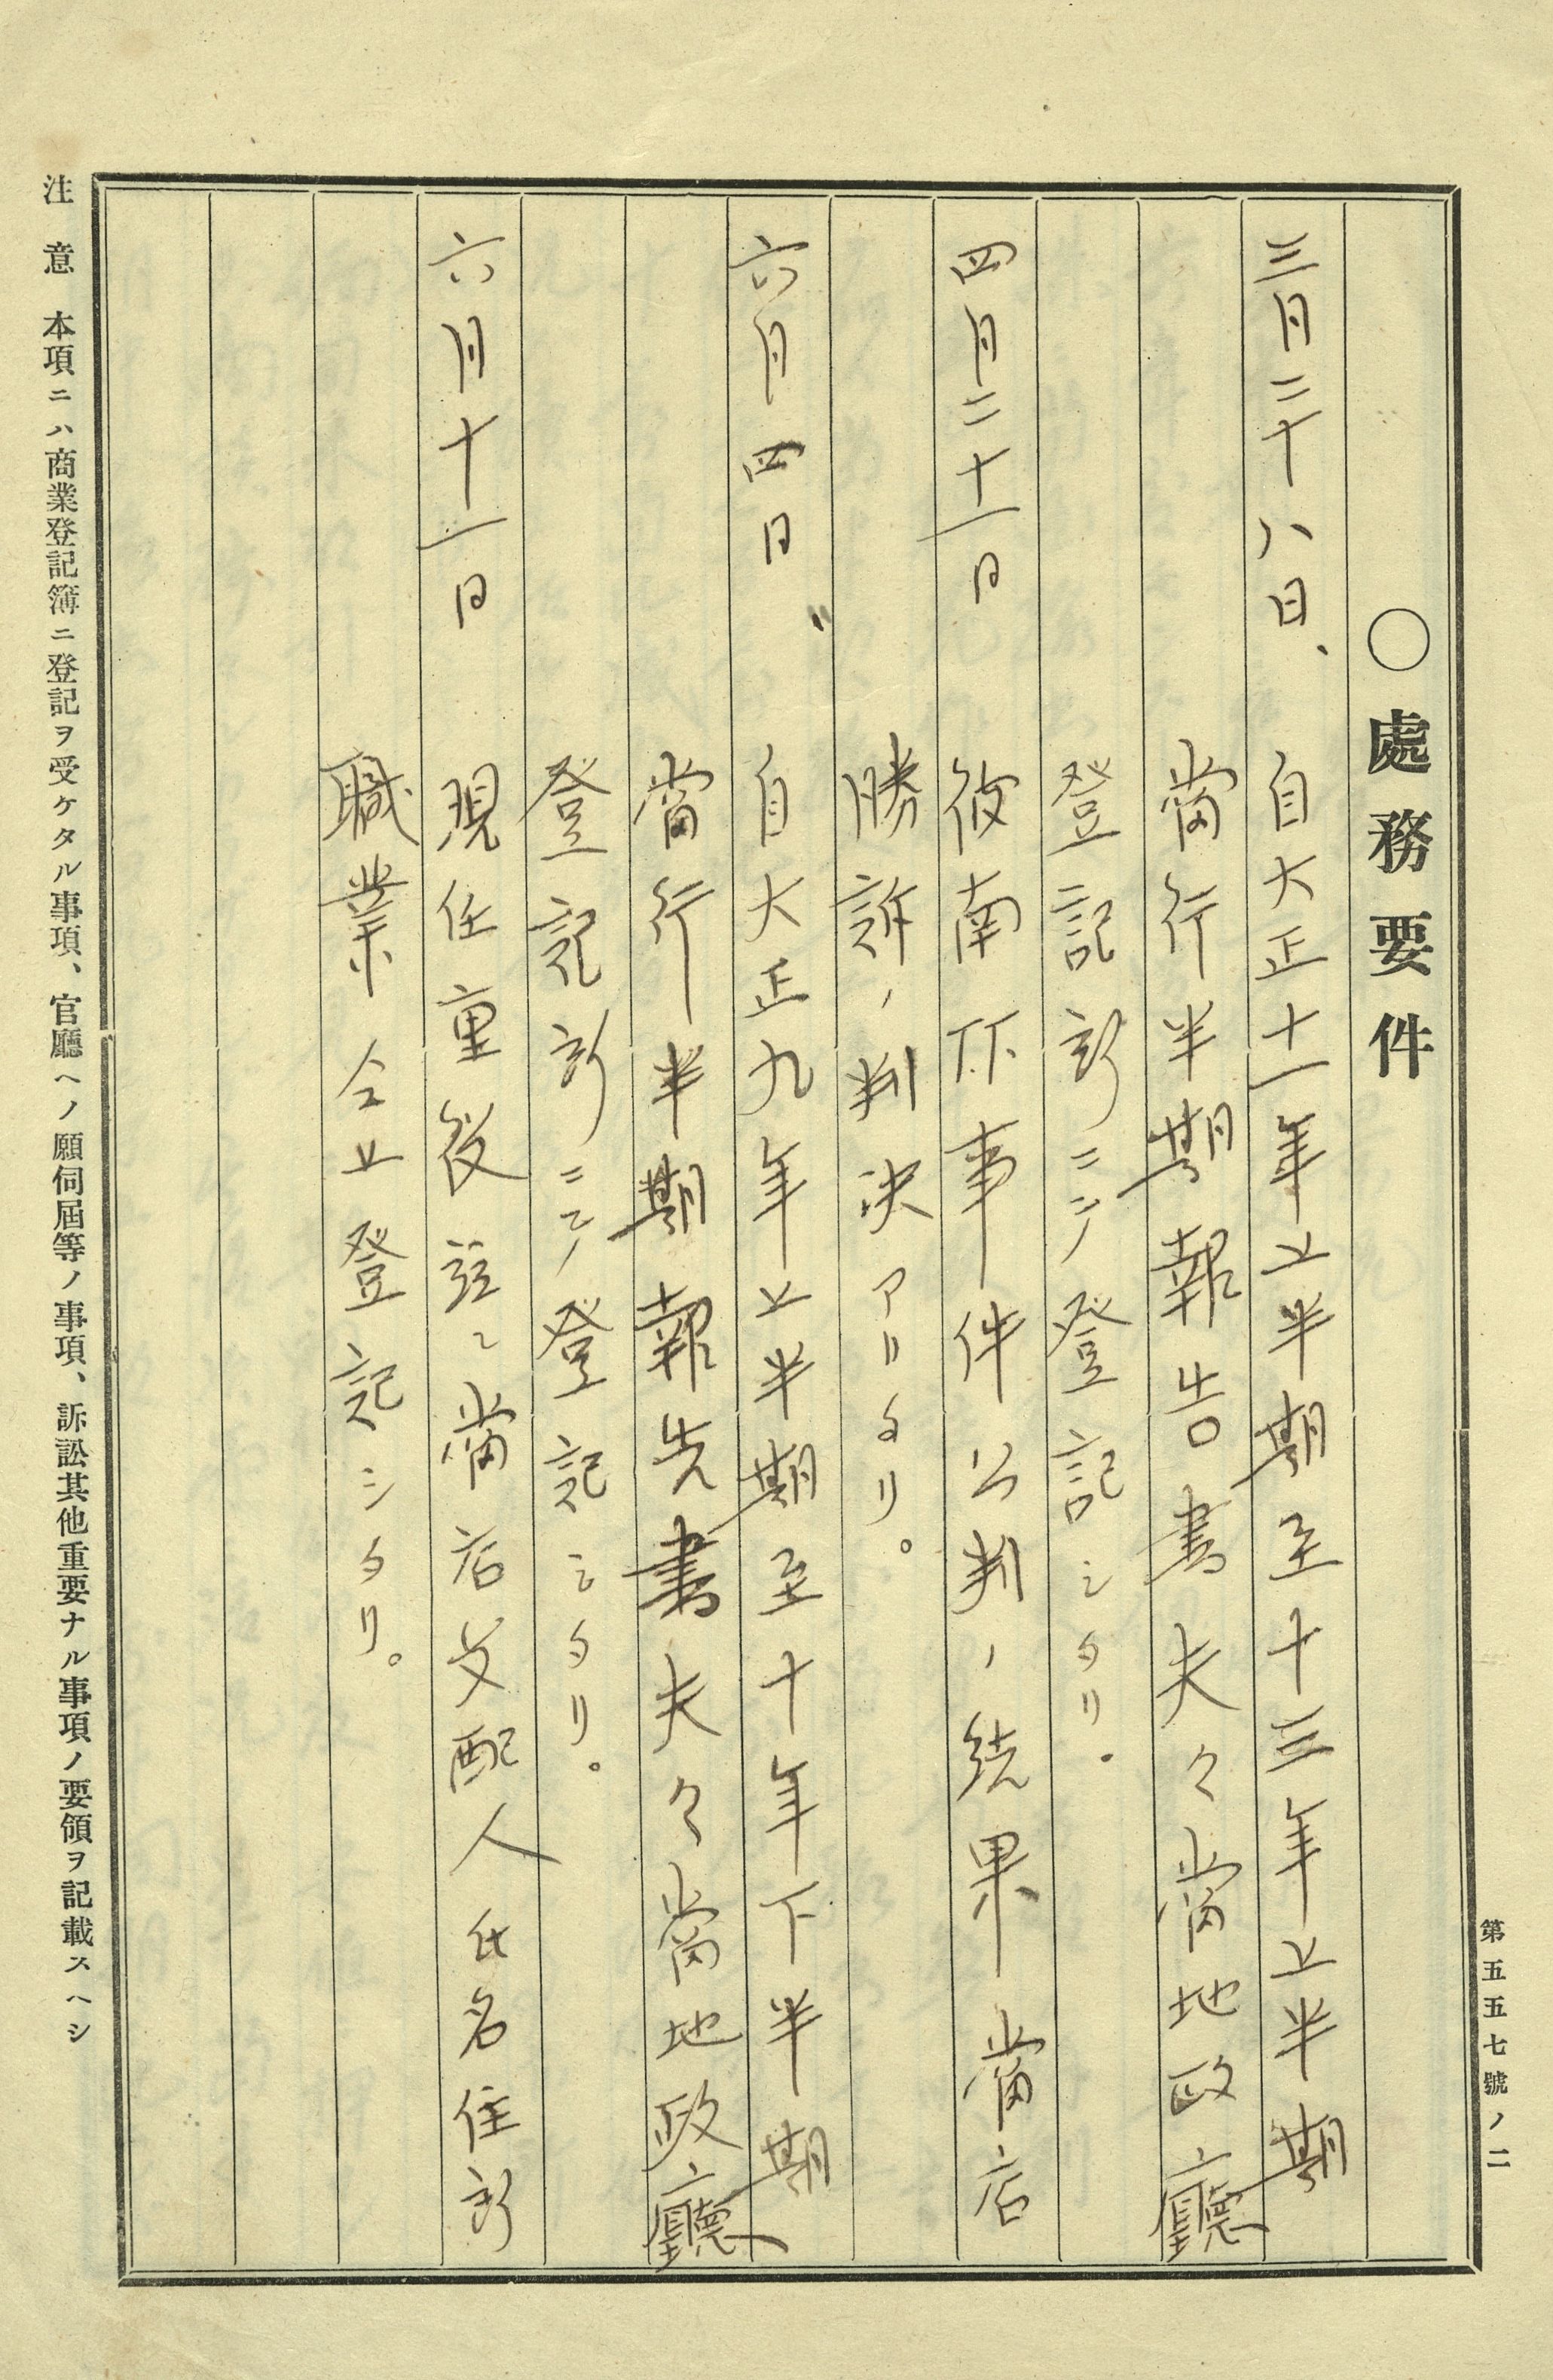 第五五七號ノ二
〇處務要件
三月二十八日、自大正十一年上半期至十三年上半期
當行半期報告書夫々當地政廳
登記所ニテ登記シタリ。
四月二十一日 彼南 事件公判ノ結果當店
勝訴ノ判決アリタリ。
六月四日 自大正九年上半期至十年下半期
當行半期報告書夫々當地政廳
登記所ニテ登記シタリ。
六月十一日 現任重役並ニ當店支配人氏名住所
職業 登記シタリ。
注意 本項ニハ商業登記簿ニ登記ヲ受ケタル事項、官廳ヘノ願伺屆等ノ事項、訴訟其他重要ナル事項ノ要領ヲ記載スヘシ